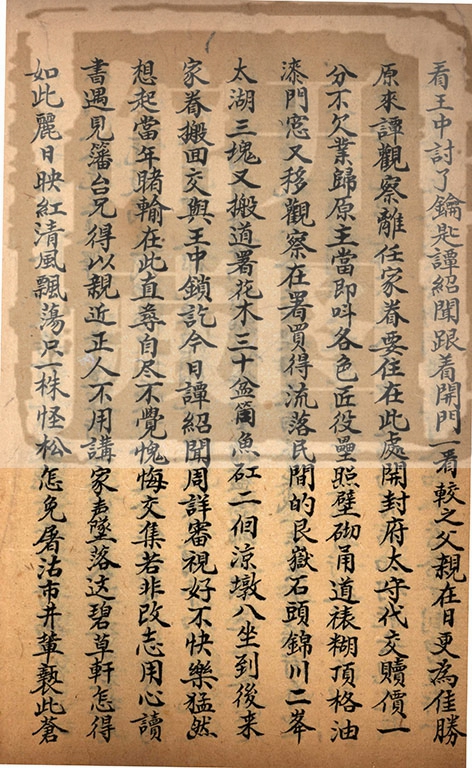 看王中討了鑰匙譚紹聞跟着開門一看較之父親在日更為佳勝
原來譚觀察離任家眷要住在此處開封府太守代交贖價一
分不欠業歸原主當即呌各色匠役壘照壁砌甬道裱糊頂格油
漆門窓又移觀察在署買得流落民間的艮嶽石頭錦川二峯
太湖三塊又搬道署花木三十盆筩魚缸二個涼墩八坐到後来
家眷搬回交與王中鎖訖今日譚紹聞周詳審視好不快樂猛然
想起當年賭輸在此直尋自尽不覺愧悔交集若非改志用心讀
書遇見籓台兄得以親近正人不用講家声墜落这碧草軒怎得
如此麗日映紅清風飄蕩只一株怪松怎免屠沽市井葷褻此蒼